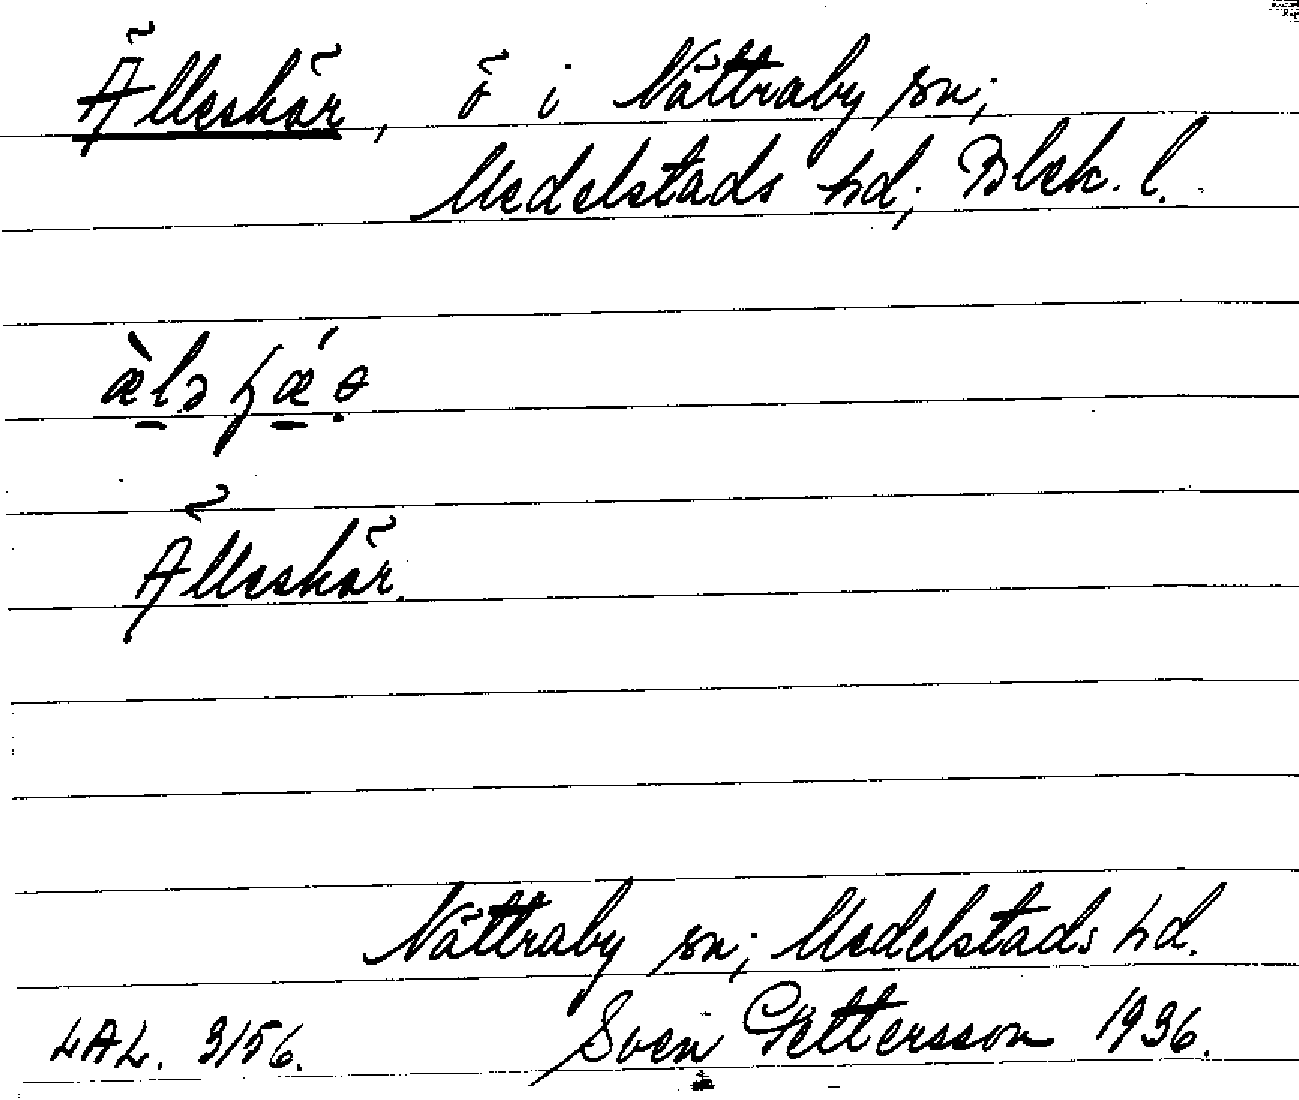 Älleskär, ö i Nättraby sn;
Medelstads hd; Blek. l.
Älleskär.
Nättraby sn; Medelstads hd.
LAL. 3/56. Sven Pettersson 1936.